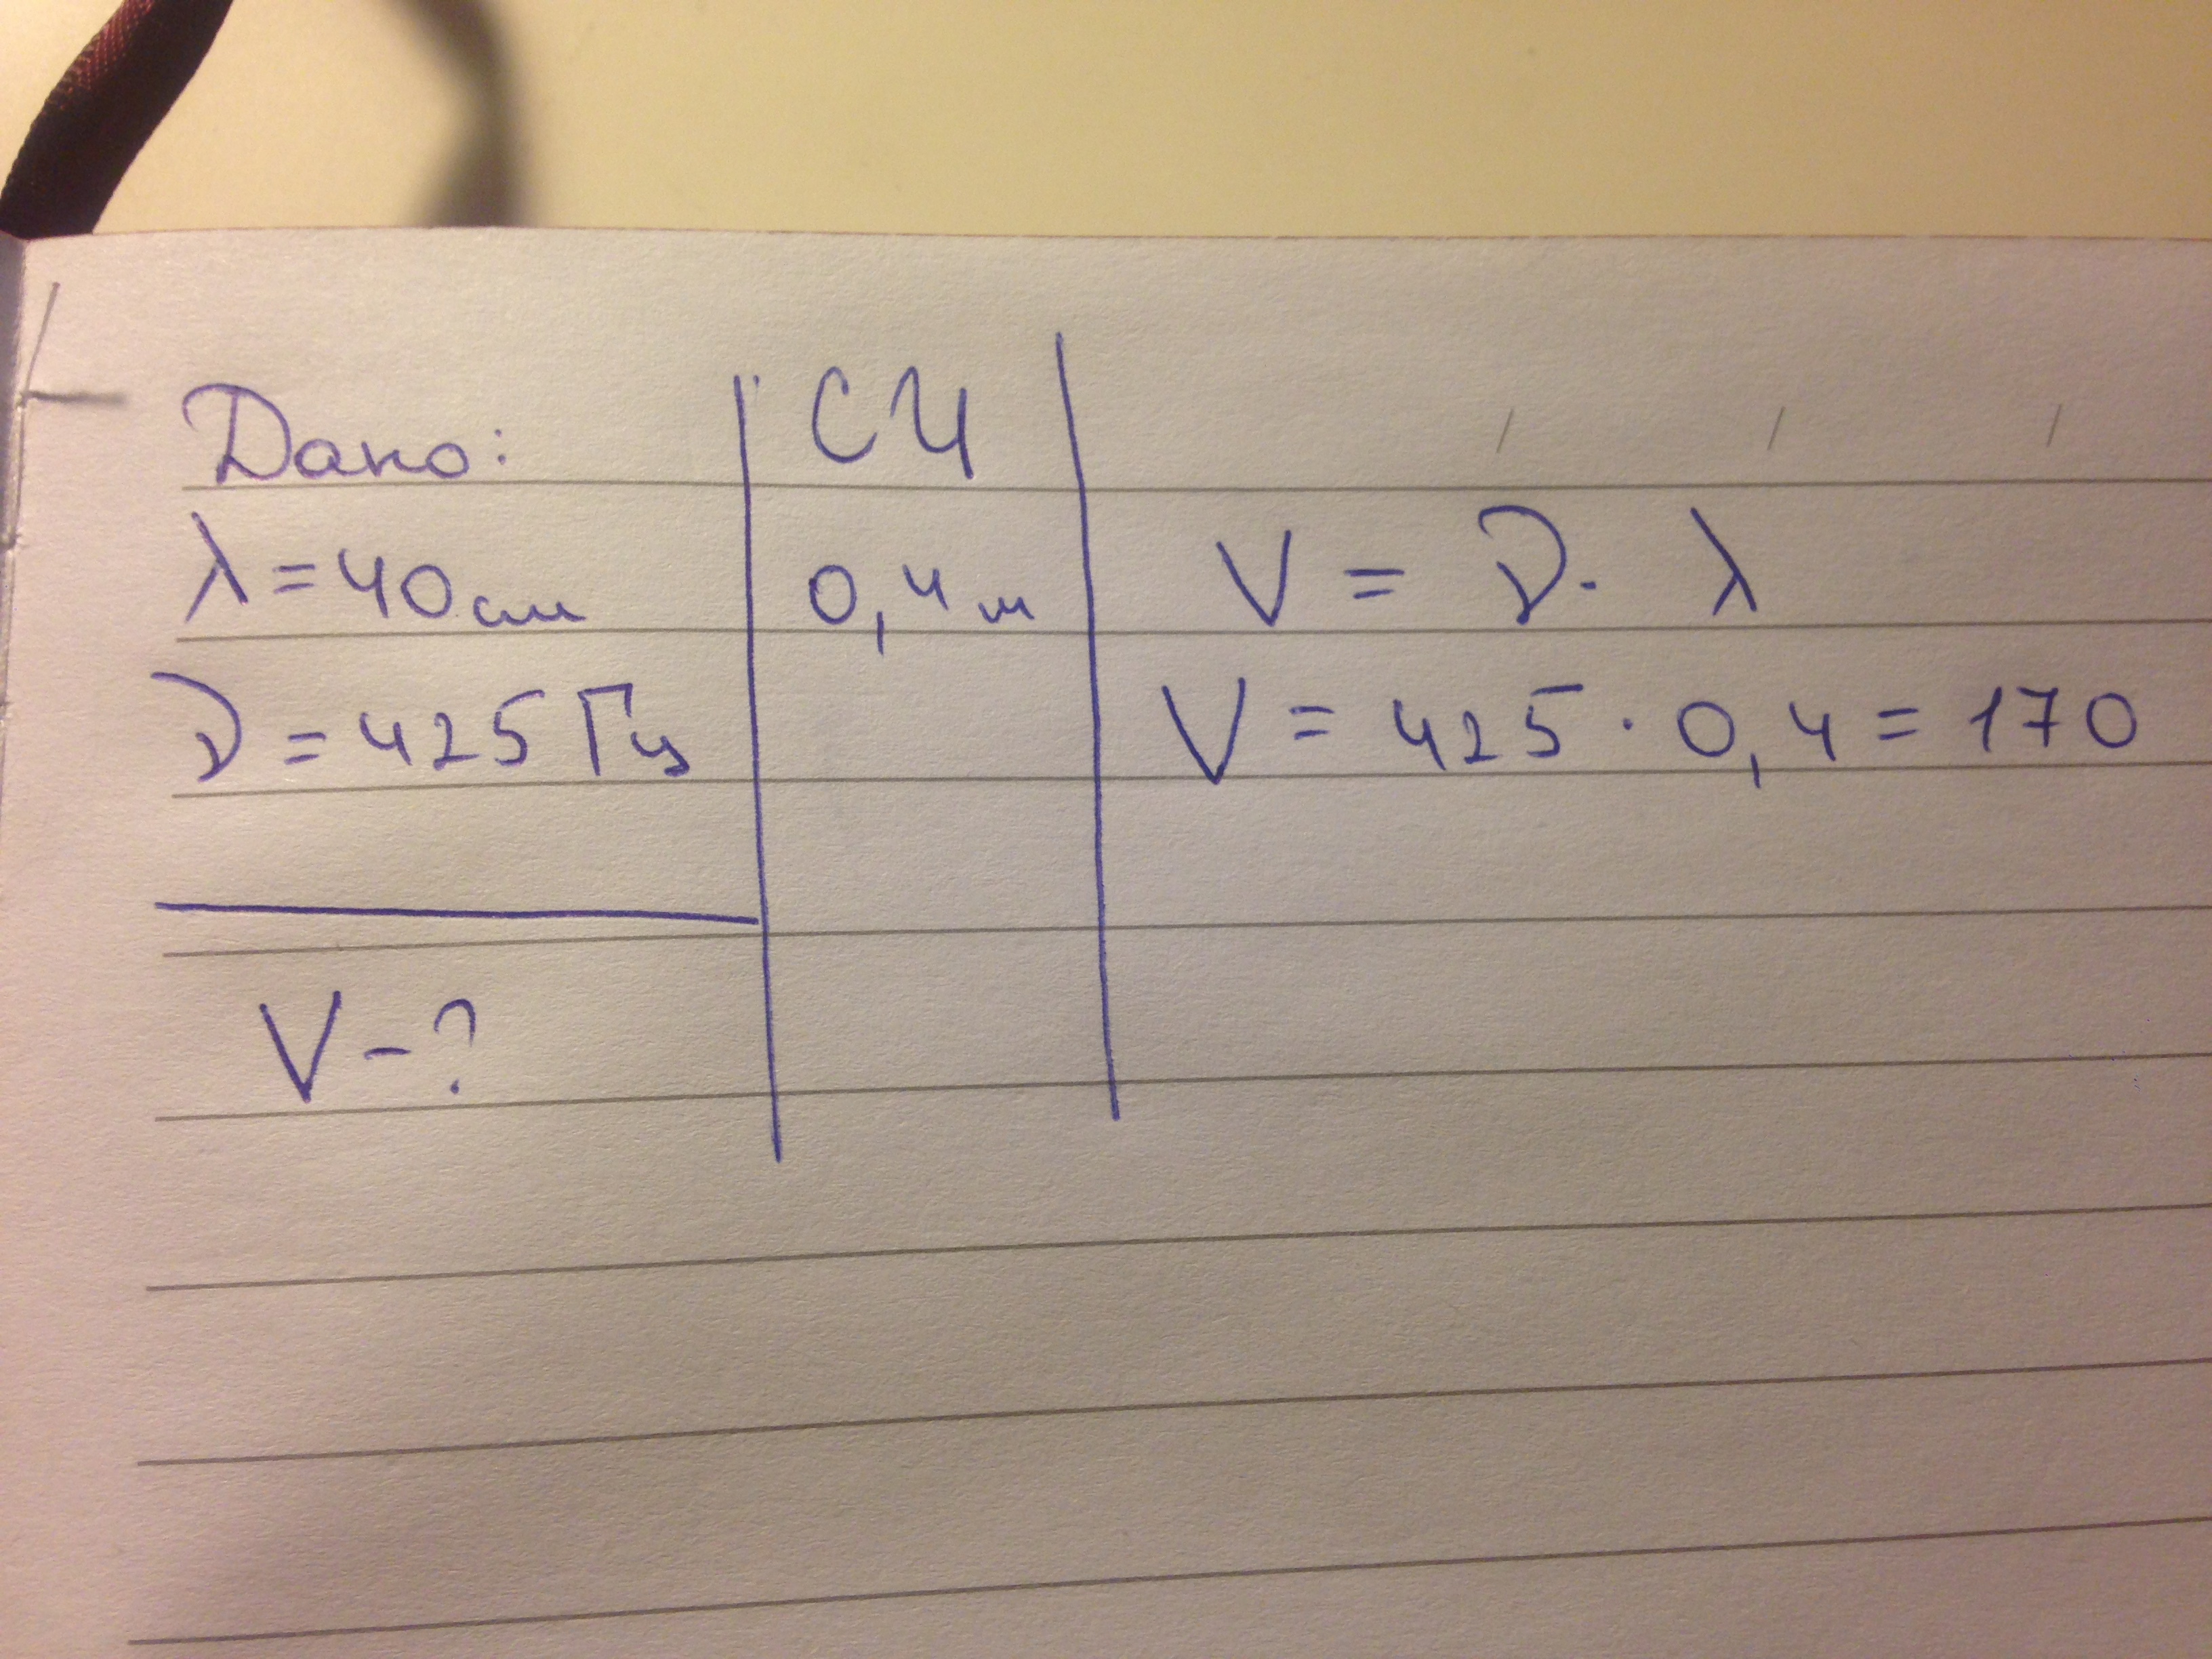 Дано:
λ = 40 см
ν = 425 Гц
V - ?
СИ
0,4 м
V = ν · λ
V = 425 · 0,4 = 170